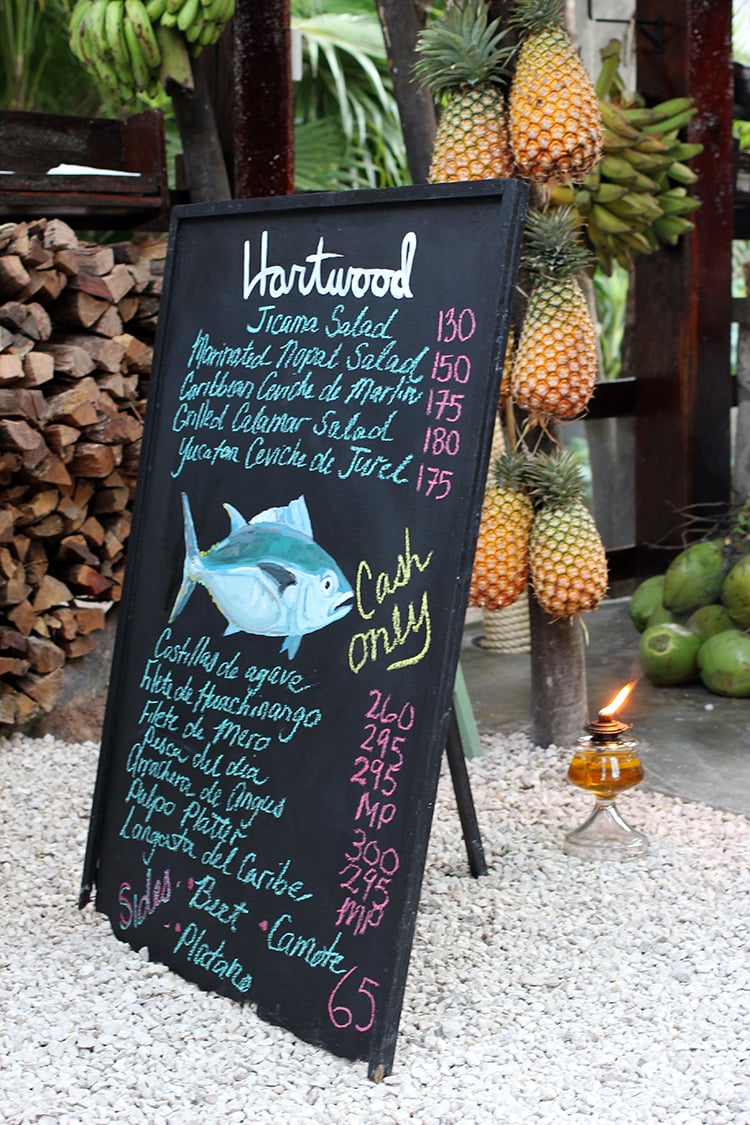 Hartwood
Jicama Salad 130
Marinated Nopal Salad 150
Caribbean Ceviche de Marlin 175
Grilled Calamar Salad 180
Yucatan Ceviche de Jurel 175
Cash
only
Costillas de agave 260
Filete de Huachinango 295
Filete de Mero 295
Pesca del dia MP
Arrachera de Angus 300
Pulpo Platter 295
Langosta del Caribe MP
Sides • Beet • Camote
• Platano 65